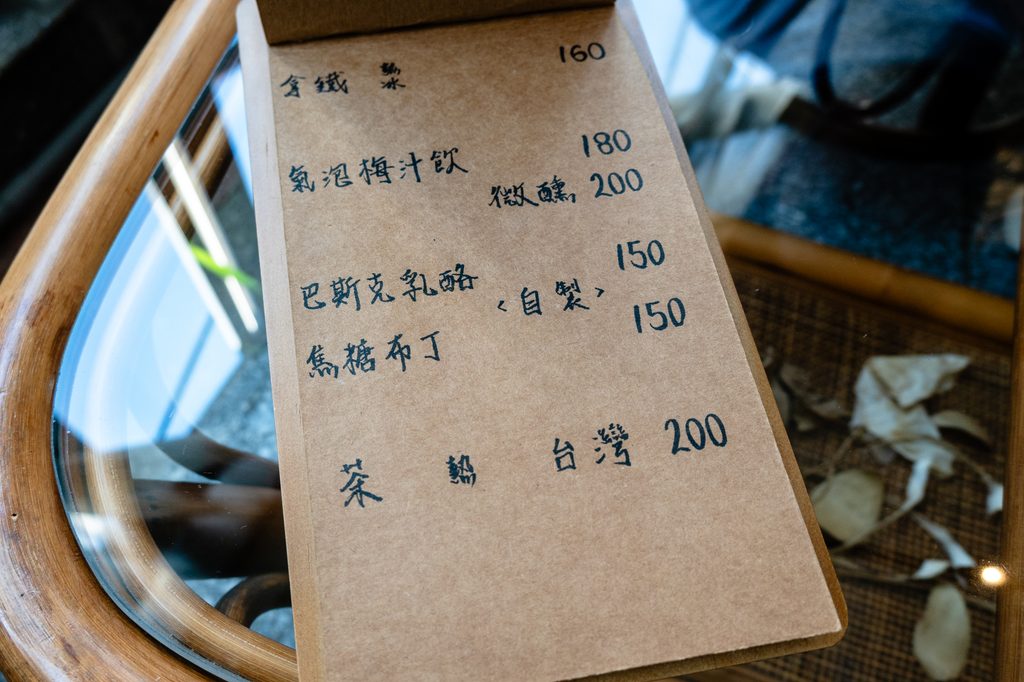 拿鐵 熱冰 160
氣泡梅汁飲 180
微醺 200
巴斯克乳酪 <自製> 150
焦糖布丁 150
茶 熱 台灣 200